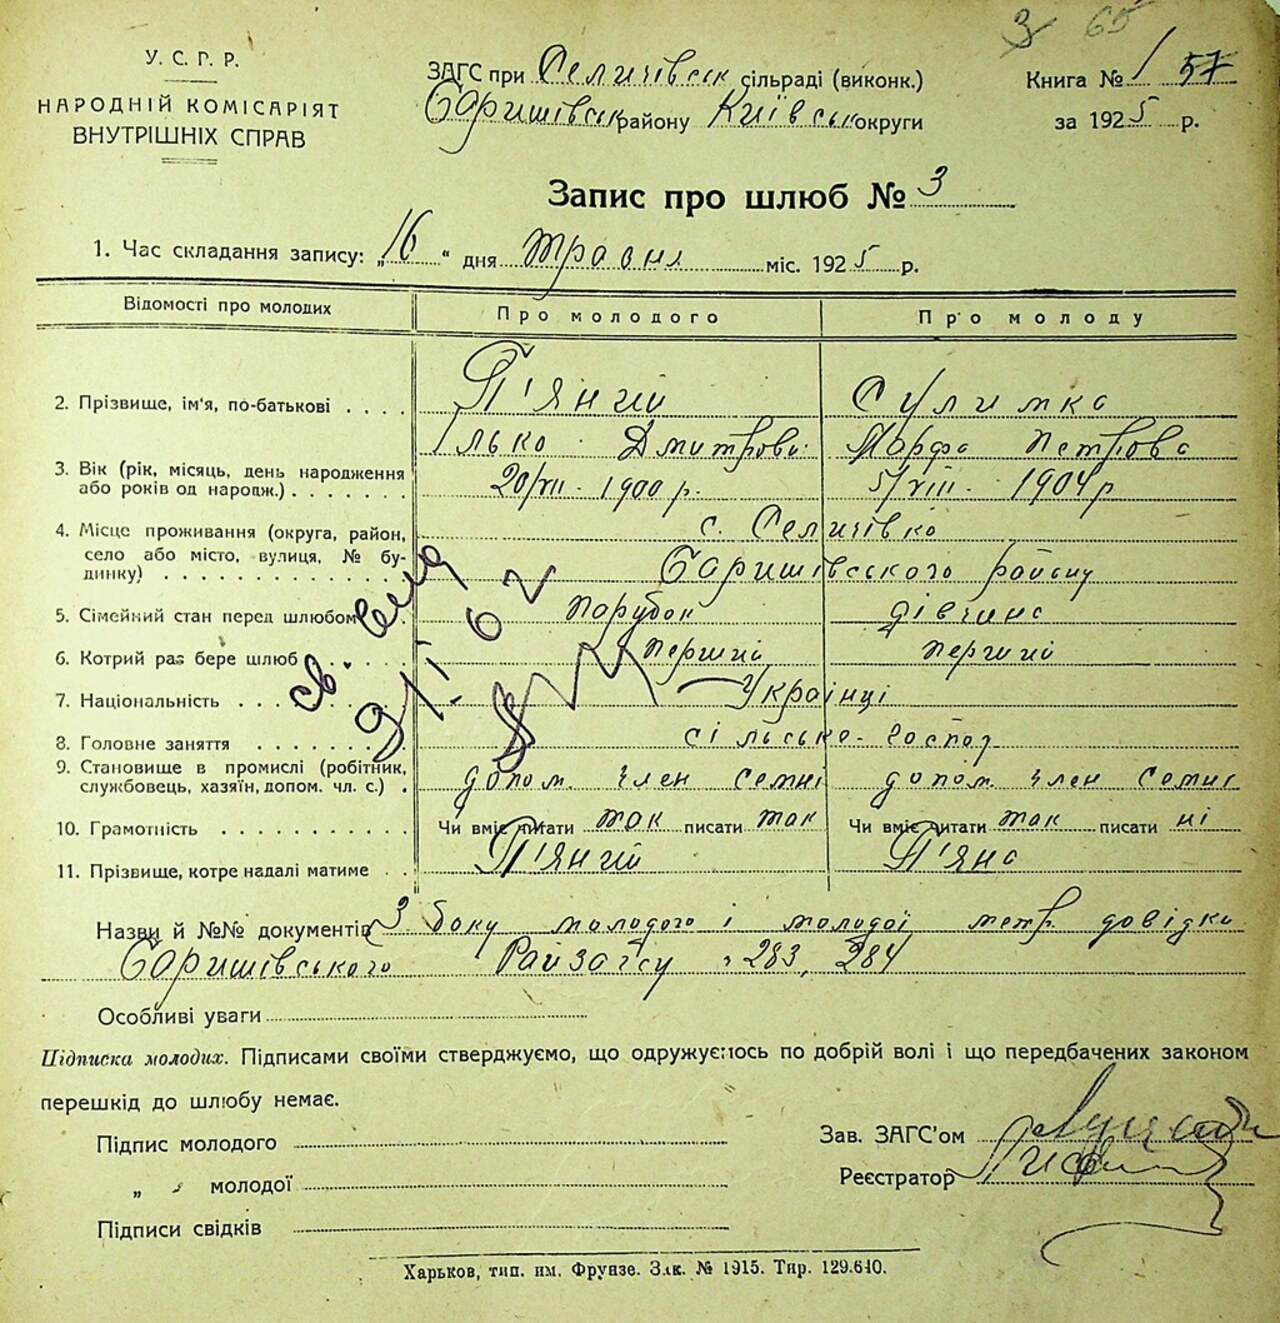 З 65
У. С. Г. Р.
НАРОДНІЙ КОМІСАРІЯТ
ВНУТРІШНІХ СПРАВ
ЗАГС при Селичівськ сільраді (виконк.)
Баришівськ району Київськ округи
Книга № 1 57
за 1925 р.
Запис про шлюб № 3
1. Час складання запису: „16“ дня травня міс. 1925 р.
Відомості про молодих Про молодого Про молоду
2. Прізвище, ім'я, по-батькові . . . . П'яний Сулимка
Ілько Дмитрови Марфа Петрова
3. Вік (рік, місяць, день народження або років од народж.) . . . . . . . 20/VII - 1900 р. 5/VIII - 1904 р
4. Місце проживання (округа, район, село або місто, вулиця, № будинку) . . . . . . . . . . . . с. Селичівка
Баришівського району
5. Сімейний стан перед шлюбом Парубок дівчина
6. Котрий раз бере шлюб . . . . . Перший перший
7. Національність . . . . . . . Українці
8. Головне заняття . . . . . . . . сільське - госпор
9. Становище в промислі (робітник, службовець, хазяїн, допом. чл. с.) . допом. член семні допом. член семні
10. Грамотність . . . . . . . . . . . Чи вміє читати так писати так Чи вміє читати так писати ні
11. Прізвище, котре надалі матиме . . П'яний П'яна
9/I 62
Назви й №№ документів З боку молодого і молодої метр. довідки
Баришівського Райзагсу 283, 284
Особливі уваги
Підписка молодих. Підписами своїми стверджуємо, що одружуємось по добрій волі і що передбачених законом
перешкід до шлюбу немає.
Підпис молодого
„ „ молодої
Підписи свідків
Зав. ЗАГС'ом
Реєстратор
Харьков, тип. им. Фрунзе. Зак. № 1915. Тир. 129.640.